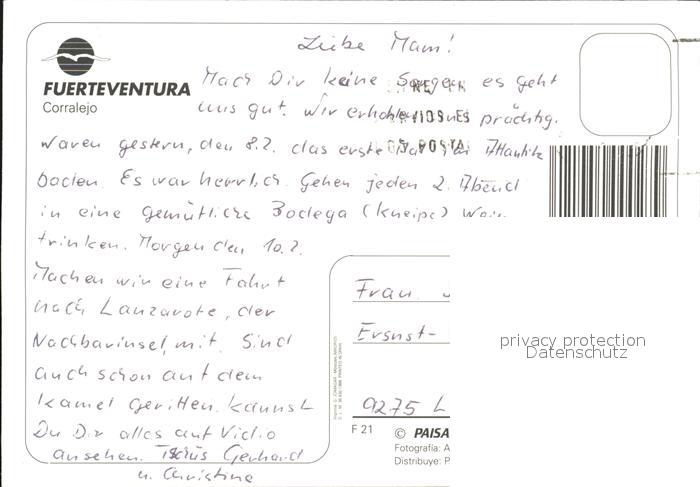 Liebe Mam!
FUERTEVENTURA
Corralejo
Mach Dir keine Sorgen es geht
uns gut. Wir erholen uns prächtig.
waren gestern, den 8.2. das erste Mal im Atlantik
baden. Es war herrlich. Gehen jeden 2. Abend
in eine gemütliche Bodega (Kneipe) Wein
trinken. Morgen den 10.2.
Machen wir eine Fahrt
nach Lanzarote, der
Nachbarinsel, mit. Sind
auch schon auf dem
Kamel geritten. Kannst
Du Dir alles auf Vidio
ansehen. Tschüs Gerhard
u. Christine
Frau
Ersnst-
9275 L
F 21
© PAISA
Fotografía: A
Distribuye: P
privacy protection
Datenschutz